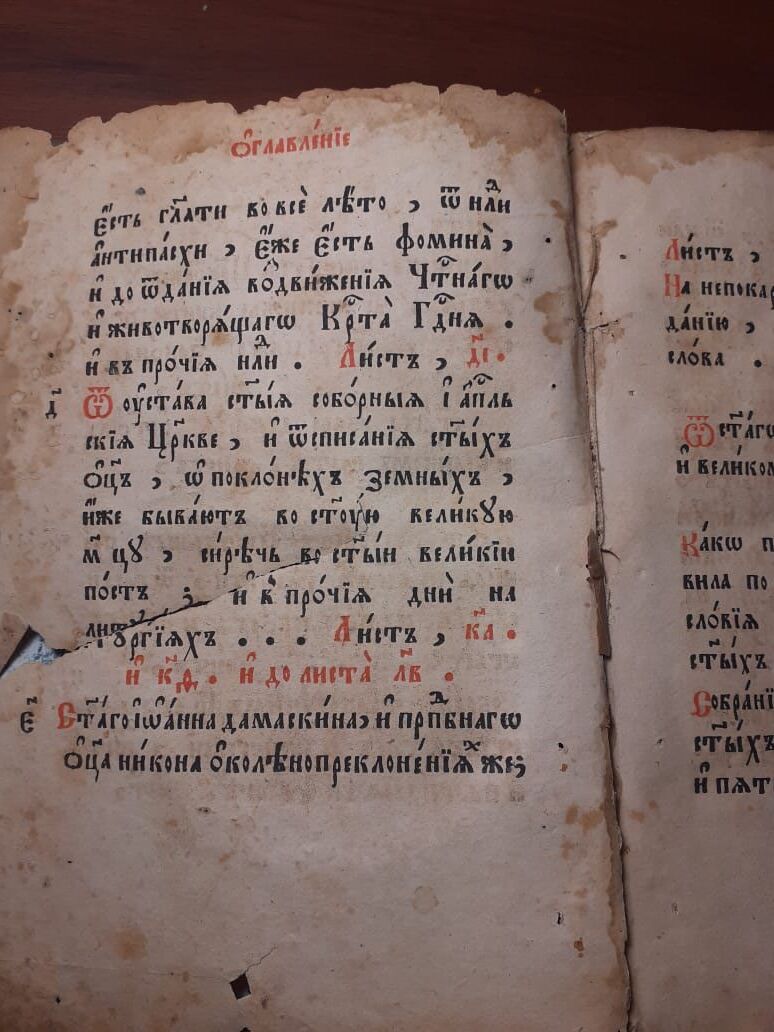 Ѻ҆главле́нїе
є҆́сть гл҃ати во всѐ лѣ́то , ѿ нⷣли
а҆нтипа́схи , є҆́же є҆́сть фомина̀ ,
и҆ до ѿда́нїѧ воⷥдви́женїѧ Чтⷭ҇на́гѡ
и҆ животворѧ́щагѡ Крⷭ҇та̀ Гдⷭ҇нѧ .
и҆ въ про́чїѧ нⷣли . Ли́стъ , д҃і .
д҃ Ѿ оуⷭ҇ста́ва ст҃ы́ѧ собо́рныѧ і҆ а҆пⷭ҇ль
скїѧ Цр҃кве , и҆ ѿ списа́нїѧ ст҃ы́хъ
Ѻ҆ц҃ъ , ѡ҆ поклонѣ́хъ земны́хъ ,
и҆́же быва́ютъ во ст҃ꙋ́ю вели́кꙋю
м҃цꙋ , си́рѣчь во ст҃ы́и вели́кїи
по́стъ ; и҆ в̾ про́чїѧ дни̑ на
литоргі́ѧхъ . . . Ли́стъ , к҃а .
и҆ к҃д . и҆ до листа̀ л҃в .
є҃ Ст҃а́го і҆ѡа́нна дамаскина̀ , и҆ прпⷣбнагѡ
ѻ҆ц҃а ни́кона ѻ҆ колѣнопреклоне́нїѧⷯ же ;
Ли́стъ ,
На
да́нїю ,
сло́ва .
Ѿ ст҃а́гѡ
и҆
Ка́кѡ
вила по
сло́вїѧ
ст҃ы́хъ
ст҃ы́хъ
и҆